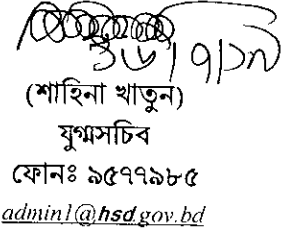 ১৬/৭/১৯
(শাহিনা খাতুন)
যুগ্মসচিব
ফোনঃ ৯৫৭৭৯৮৫
admin1@hsd.gov.bd